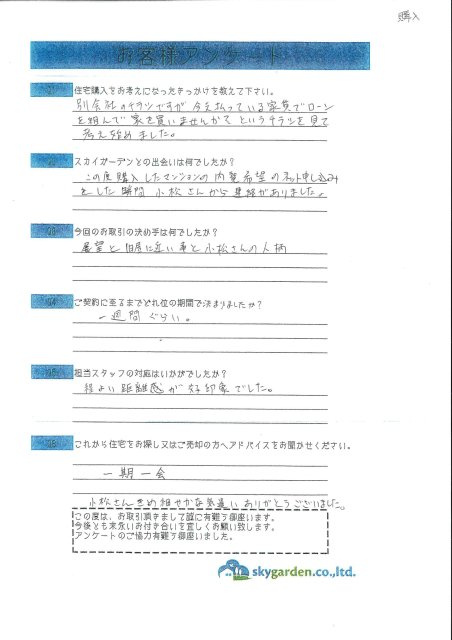 購入
お客様アンケート
Q1 住宅購入をお考えになったきっかけを教えて下さい。
別会社のチラシですが 今支払っている家賃でローン
を組んで家を買いませんか？というチラシを見て
考え始めました。
Q2 スカイガーデンとの出会いは何でしたか？
この度購入したマンションの内覧希望のネット申し込み
をした瞬間 小松さんから連絡がありました。
Q3 今回のお取引の決め手は何でしたか？
展望と旧居に近い事と小松さんの人柄
Q4 ご契約に至るまでどれ位の期間で決まりましたか？
一週間ぐらい。
Q5 担当スタッフの対応はいかがでしたか？
程よい距離感が好印象でした。
Q6 これから住宅をお探し又はご売却の方へアドバイスをお聞かせください。
一期一会
小松さんきめ細やかな気遣いありがとうございました。
この度は、お取引頂きまして誠に有難う御座います。
今後とも末永いお付き合いを宜しくお願い致します。
アンケートのご協力有難う御座いました。
skygarden.co.,ltd.